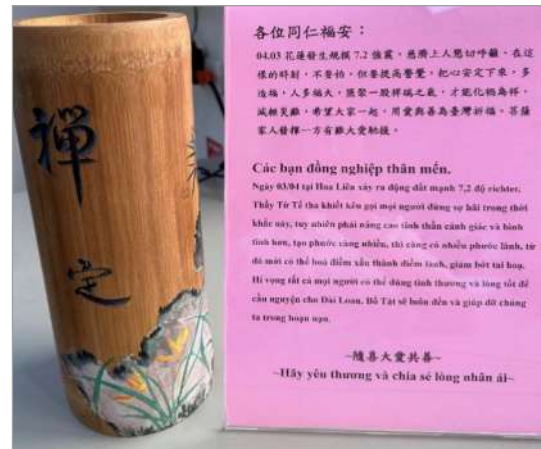 禪
定
各位同仁福安：
04.03 花蓮發生規模 7.2 強震，慈濟上人懇切呼籲，在這
樣的時刻，不要怕，但要提高警覺，把心安定下來，多
造福，人多福大，匯聚一股祥瑞之氣，才能化禍為祥，
減輕災難，希望大家一起，用愛與善為臺灣祈福。菩薩
家人發揮一方有難大愛馳援。
Các bạn đồng nghiệp thân mến.
Ngày 03/04 tại Hoa Liên xảy ra động đất mạnh 7,2 độ richter,
Thầy Từ Tế tha khiết kêu gọi mọi người đừng sợ hãi trong thời
khắc này, tuy nhiên phải nâng cao tinh thần cảnh giác và bình
tĩnh hơn, tạo phước càng nhiều, thì càng có nhiều phước lành, từ
đó mới có thể hoá điềm xấu thành điềm lành, giảm bớt tai hoạ.
Hi vọng tất cả mọi người có thể dùng tình thương và lòng tốt để
cầu nguyện cho Đài Loan. Bồ Tát sẽ luôn đến và giúp đỡ chúng
ta trong hoạn nạn.
~隨喜大愛共善~
~Hãy yêu thương và chia sẻ lòng nhân ái~